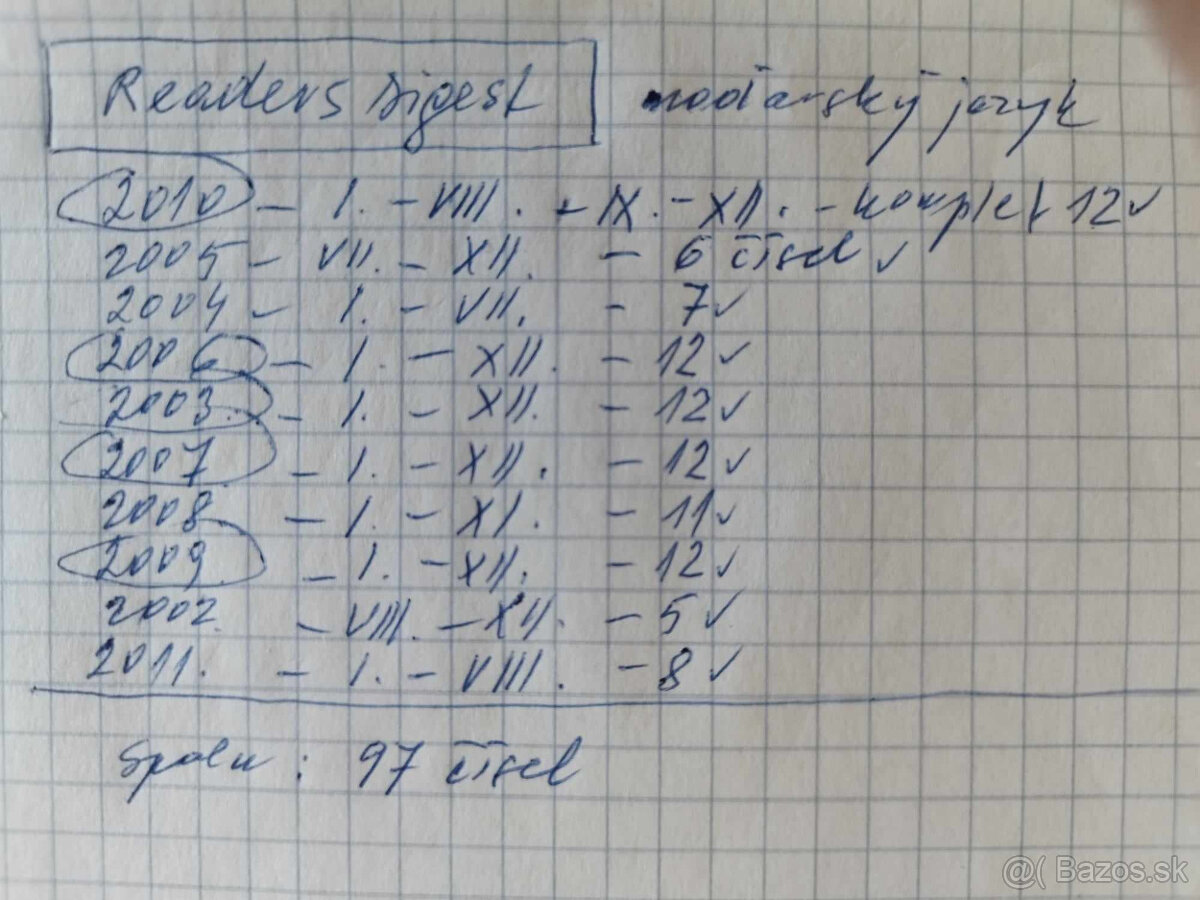 Readers Digest maďarský jazyk
2010 - I. - VIII. + IX. - XII. - komplet 12 ✓
2005 - VII. - XII. - 6 čísel ✓
2004 - I. - VII. - 7 ✓
2006 - I. - XII. - 12 ✓
2003. - I. - XII. - 12 ✓
2007 - I. - XII. - 12 ✓
2008 - I. - XI. - 11 ✓
2009 - I. - XII. - 12 ✓
2002 - VIII. - XII. - 5 ✓
2011. - I. - VIII. - 8 ✓
Spolu : 97 čísel
@( Bazos.sk